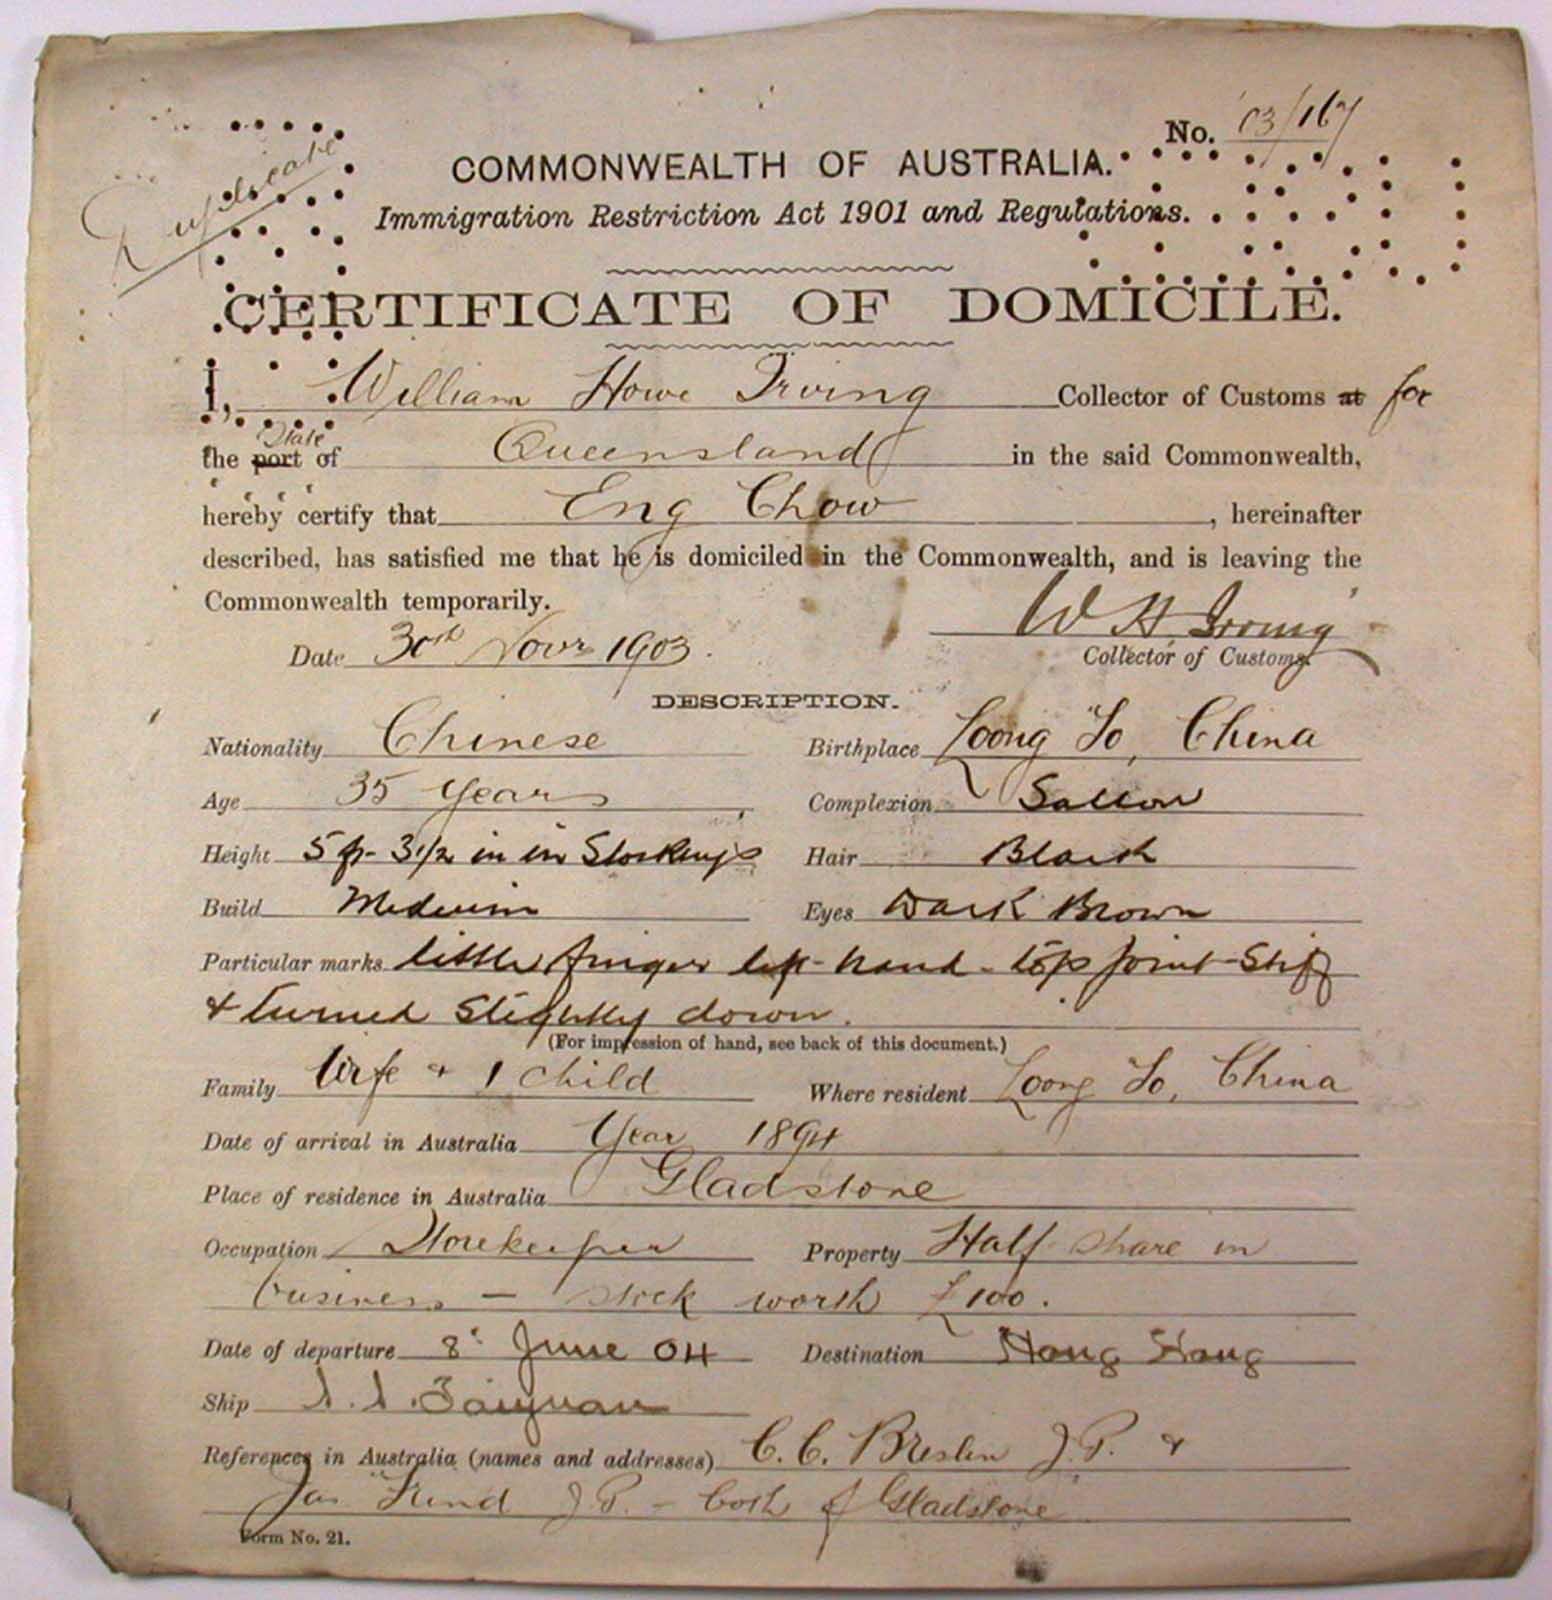 Duplicate
No. 03/167
COMMONWEALTH OF AUSTRALIA.
Immigration Restriction Act 1901 and Regulations.
CERTIFICATE OF DOMICILE.
I, William Howe Irving Collector of Customs at for
State
the port of Queensland in the said Commonwealth,
hereby certify that Eng Chow, hereinafter
described, has satisfied me that he is domiciled in the Commonwealth, and is leaving the
Commonwealth temporarily.
W H Irving
Date 30th Novr 1903.
Collector of Customs.
DESCRIPTION.
Nationality Chinese Birthplace Loong To, China
Age 35 years Complexion Sallow
Height 5 ft- 3 1/2 in in Stockings Hair Black
Build Medium Eyes Dark Brown
Particular marks little finger left hand - top joint Stiff
& turned slightly down.
(For impression of hand, see back of this document.)
Family Wife & 1 child Where resident Loong To, China
Date of arrival in Australia Year 1894
Place of residence in Australia Gladstone
Occupation Storekeeper Property Half share in
business — stock worth £100.
Date of departure 8 June 04 Destination Hong Kong
Ship S.S. Taiyuan
References in Australia (names and addresses) C. C. Breslin J.P. &
Jas Friend J.P. - both of Gladstone
Form No. 21.